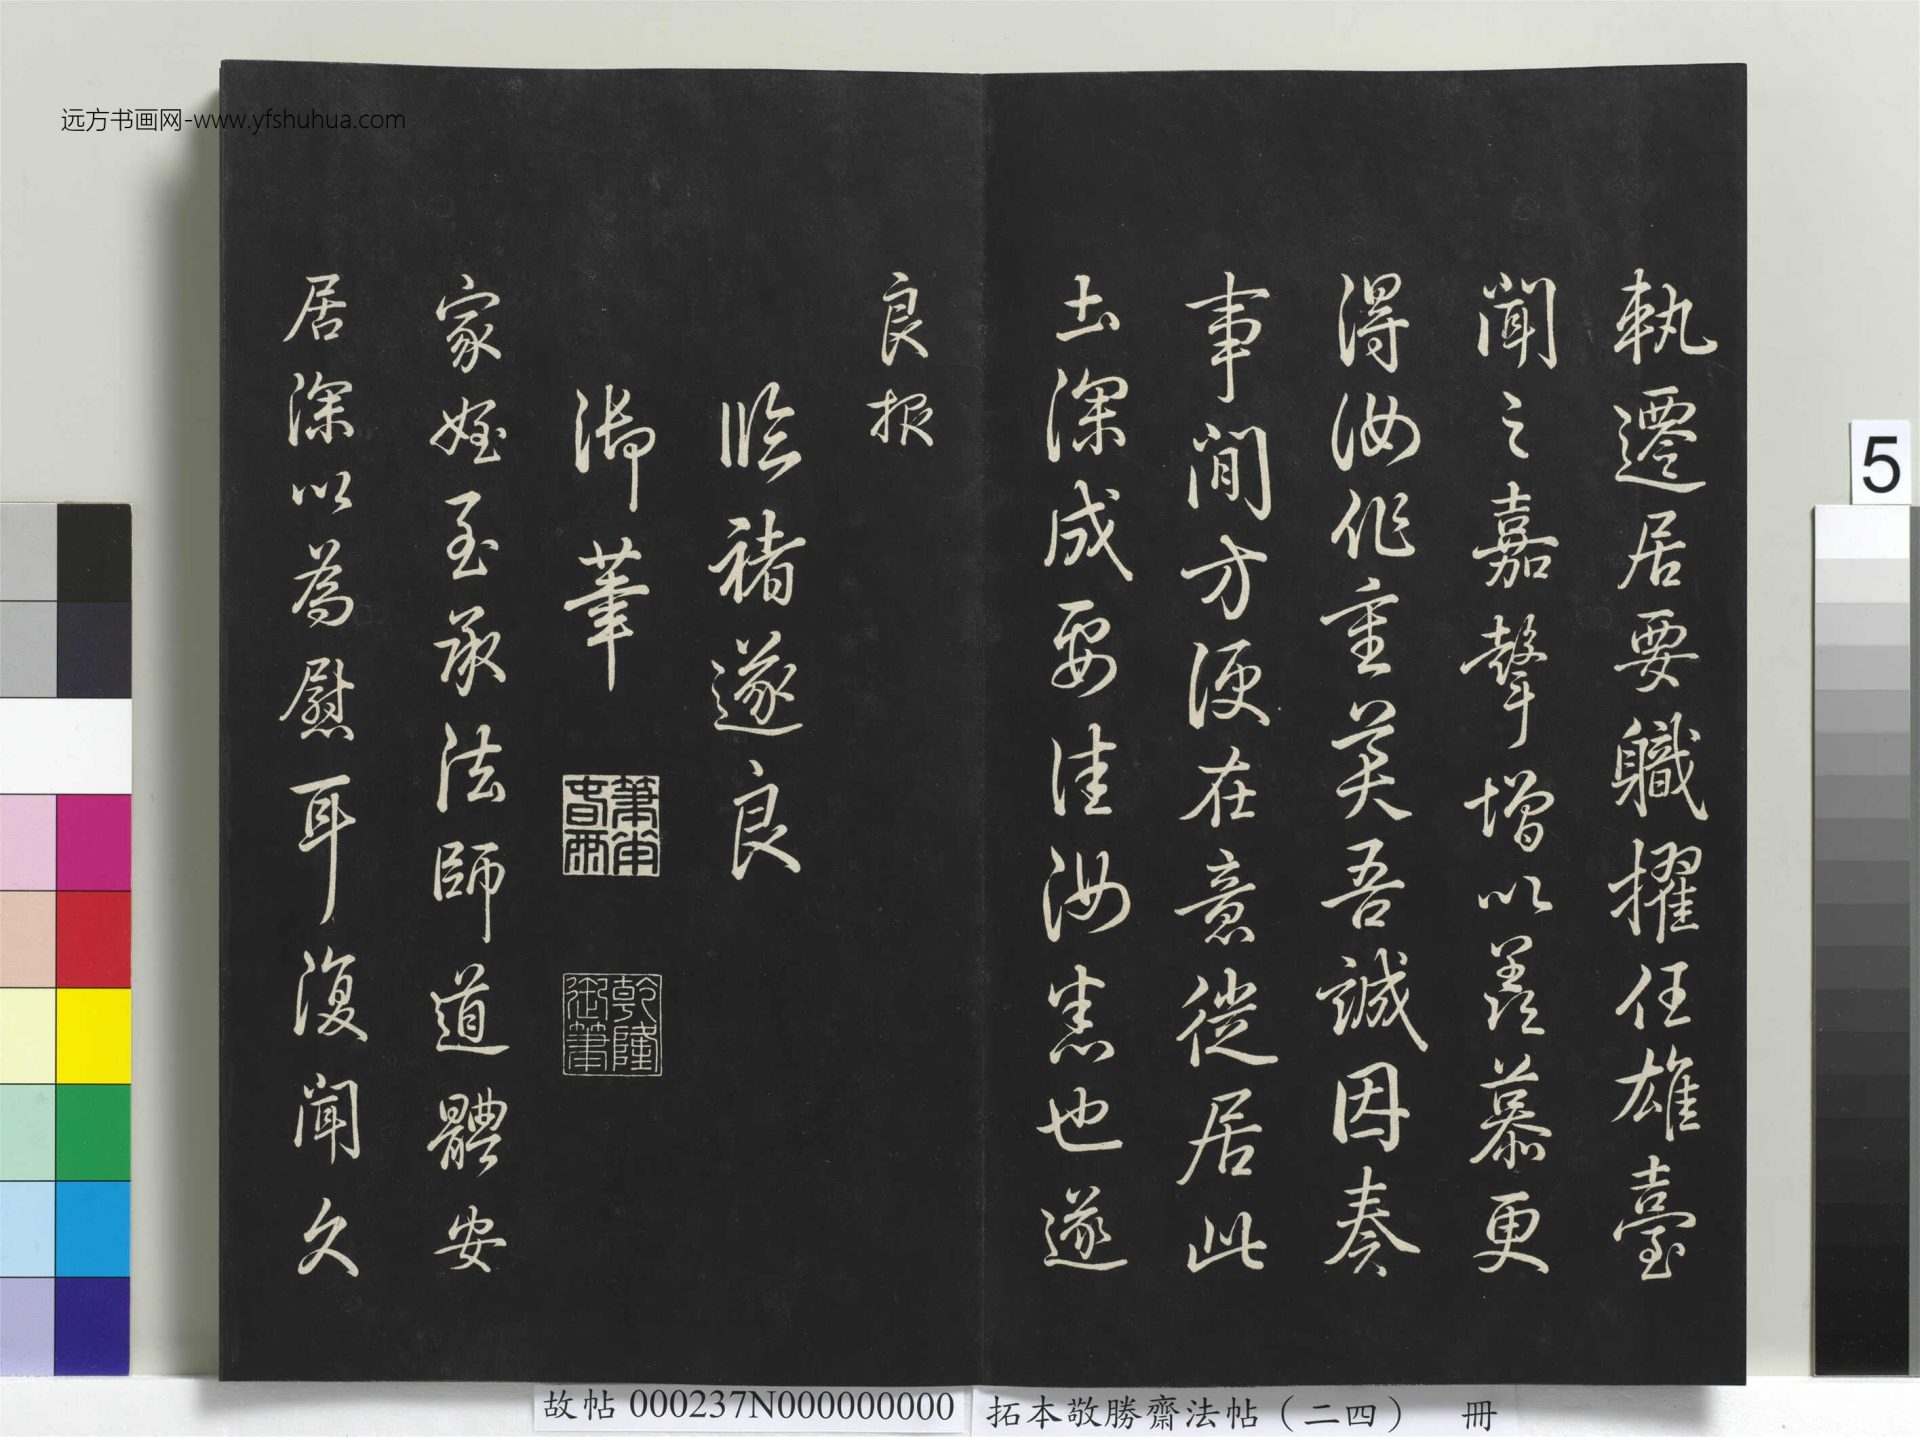 远方书画网-www.yfshuhua.com
執遷居要職擢任雄臺
聞之嘉聲增以羨慕更
得汝作重英吾誠因奏
事間方便在意徙居此
土深成要佳汝恚也遂
良报
臨褚遂良
御筆
筆
乾隆御筆
家姪至承法師道體安
居深以為慰耳復聞久
5
故帖 000237N000000000
拓本敬勝齋法帖（二四） 冊